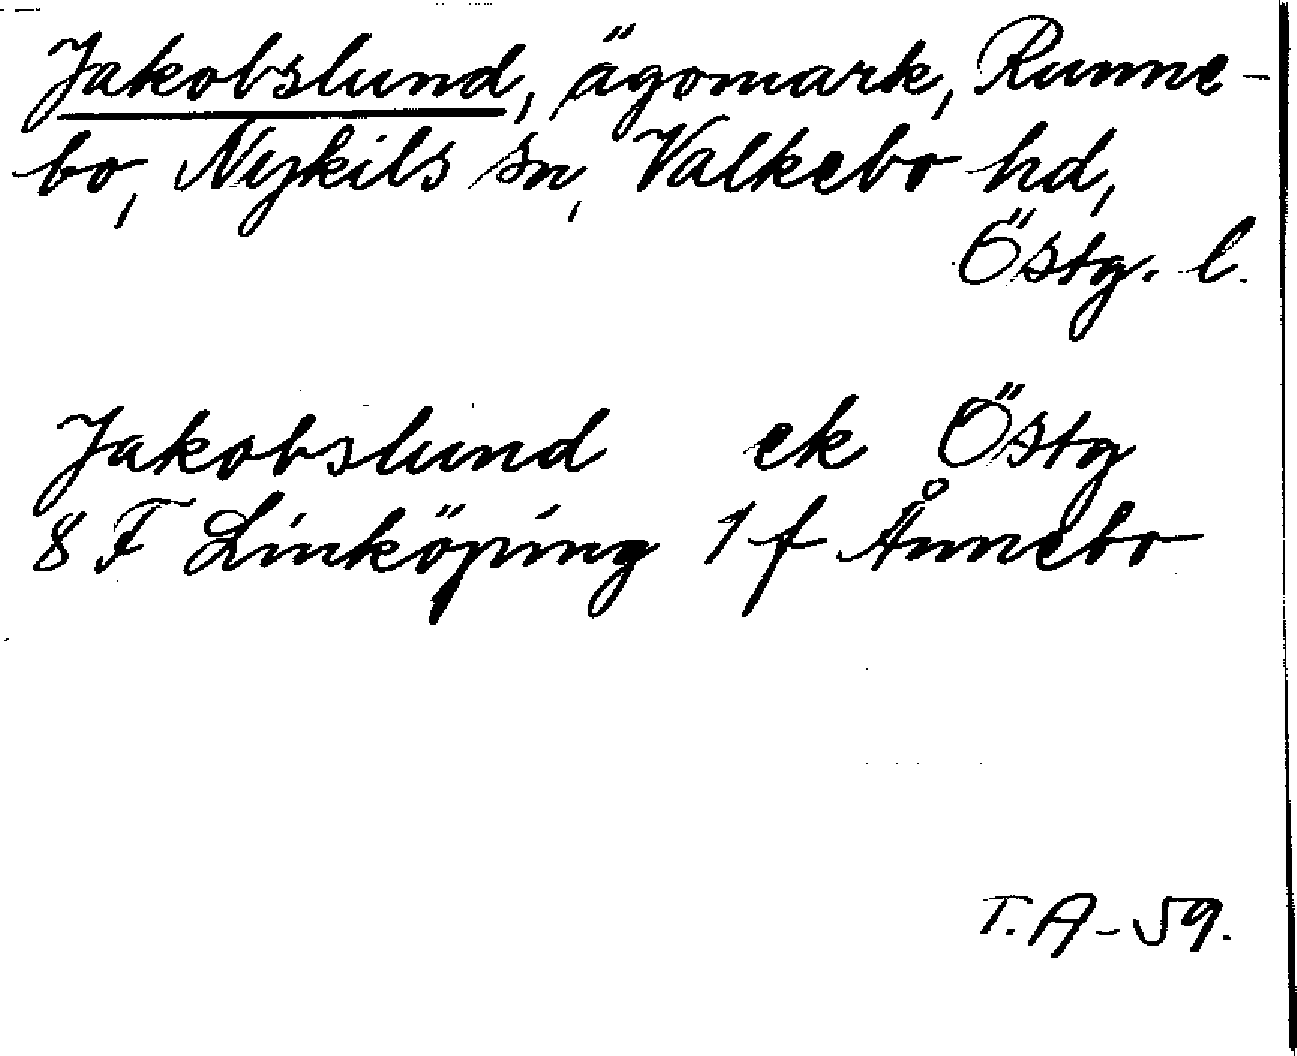 Jakobslund, ägomark, Runne-
bo, Nykils sn, Valkebo hd,
Östg. l.
Jakobslund ek Östg
8 F Linköping 1 f Ånnebo
T. A-59.